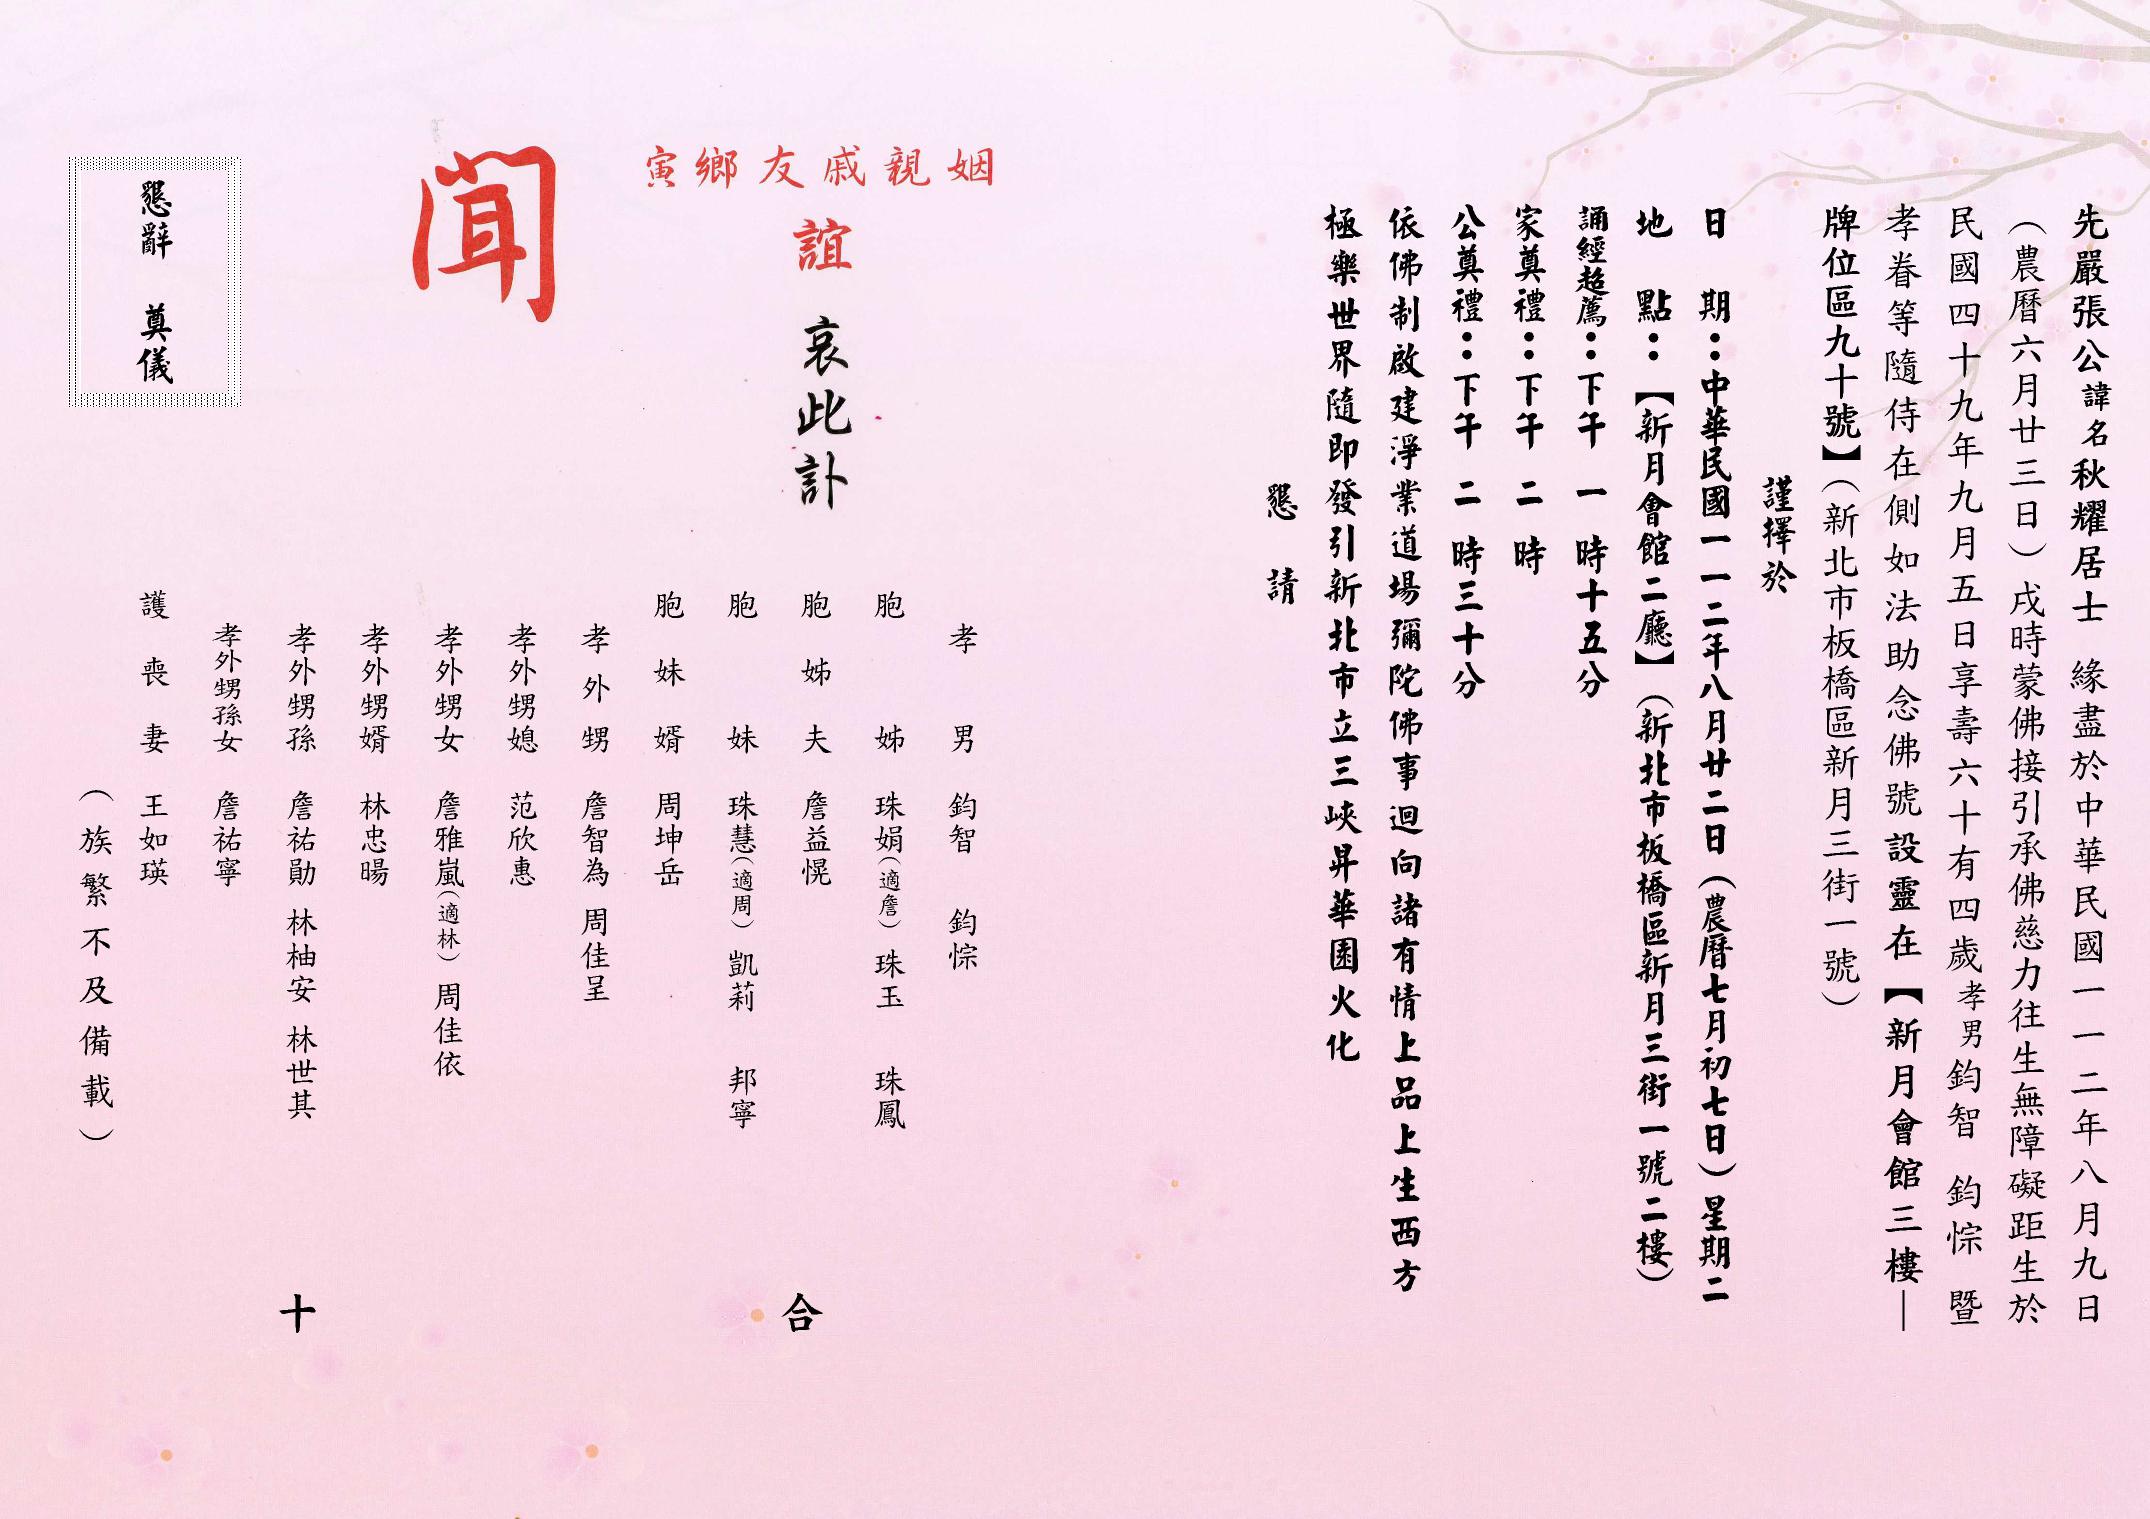 先嚴張公諱名秋耀居士 緣盡於中華民國一一二年八月九日
(農曆六月廿三日)戌時蒙佛接引承佛慈力往生無障礙距生於
民國四十九年九月五日享壽六十有四歲孝男鈞智 鈞悰 暨
孝眷等隨侍在側如法助念佛號設靈在【新月會館三樓—
牌位區九十號】(新北市板橋區新月三街一號)
謹擇於
日 期:中華民國一一二年八月廿二日(農曆七月初七日)星期二
地 點:【新月會館二廳】(新北市板橋區新月三街一號二樓)
誦經超薦:下午 一 時十五分
家奠禮:下午 二 時
公奠禮:下午 二 時三十分
依佛制啟建淨業道場彌陀佛事迴向諸有情上品上生西方
極樂世界隨即發引新北市立三峽昇華園火化
懇 請
姻親戚友鄉寅
誼 哀此訃
聞
孝 男 鈞智 鈞悰
胞 姊 珠娟(適詹) 珠玉 珠鳳
胞 姊 夫 詹益愰
胞 妹 珠慧(適周) 凱莉 邦寧
胞 妹 婿 周坤岳
孝 外 甥 詹智為 周佳呈
孝外甥媳 范欣惠
孝外甥女 詹雅嵐(適林) 周佳依
孝外甥婿 林忠暘
孝外甥孫 詹祐勛 林柚安 林世其
孝外甥孫女 詹祐寧
護 喪 妻 王如瑛
(族繁不及備載)
合 十
懇辭 奠儀